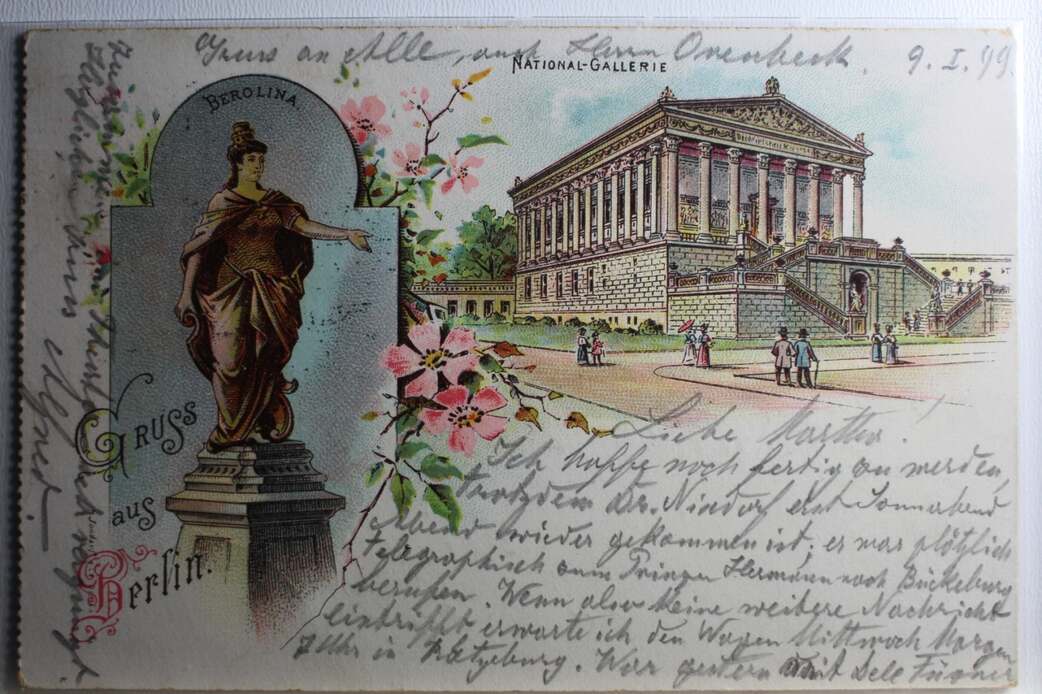 Gruss an Alle, auch Herrn Overbeck. 9. I. 99.
NATIONAL-GALLERIE
BEROLINA.
GRUSS
aus
Berlin.
Liebe Martha!
Ich hoffe noch fertig zu werden,
trotzdem Dr. Nindorf erst Sonnabend
Abend wieder gekommen ist; er war plötzlich
telegraphisch zum Prinzen Hermann nach Bückeburg
berufen. Wenn also keine weitere Nachricht
eintrifft erwarte ich den Wagen Mittwoch Morgen
7 Uhr in Ratzeburg. War gestern mit
Herzlichen Kuss